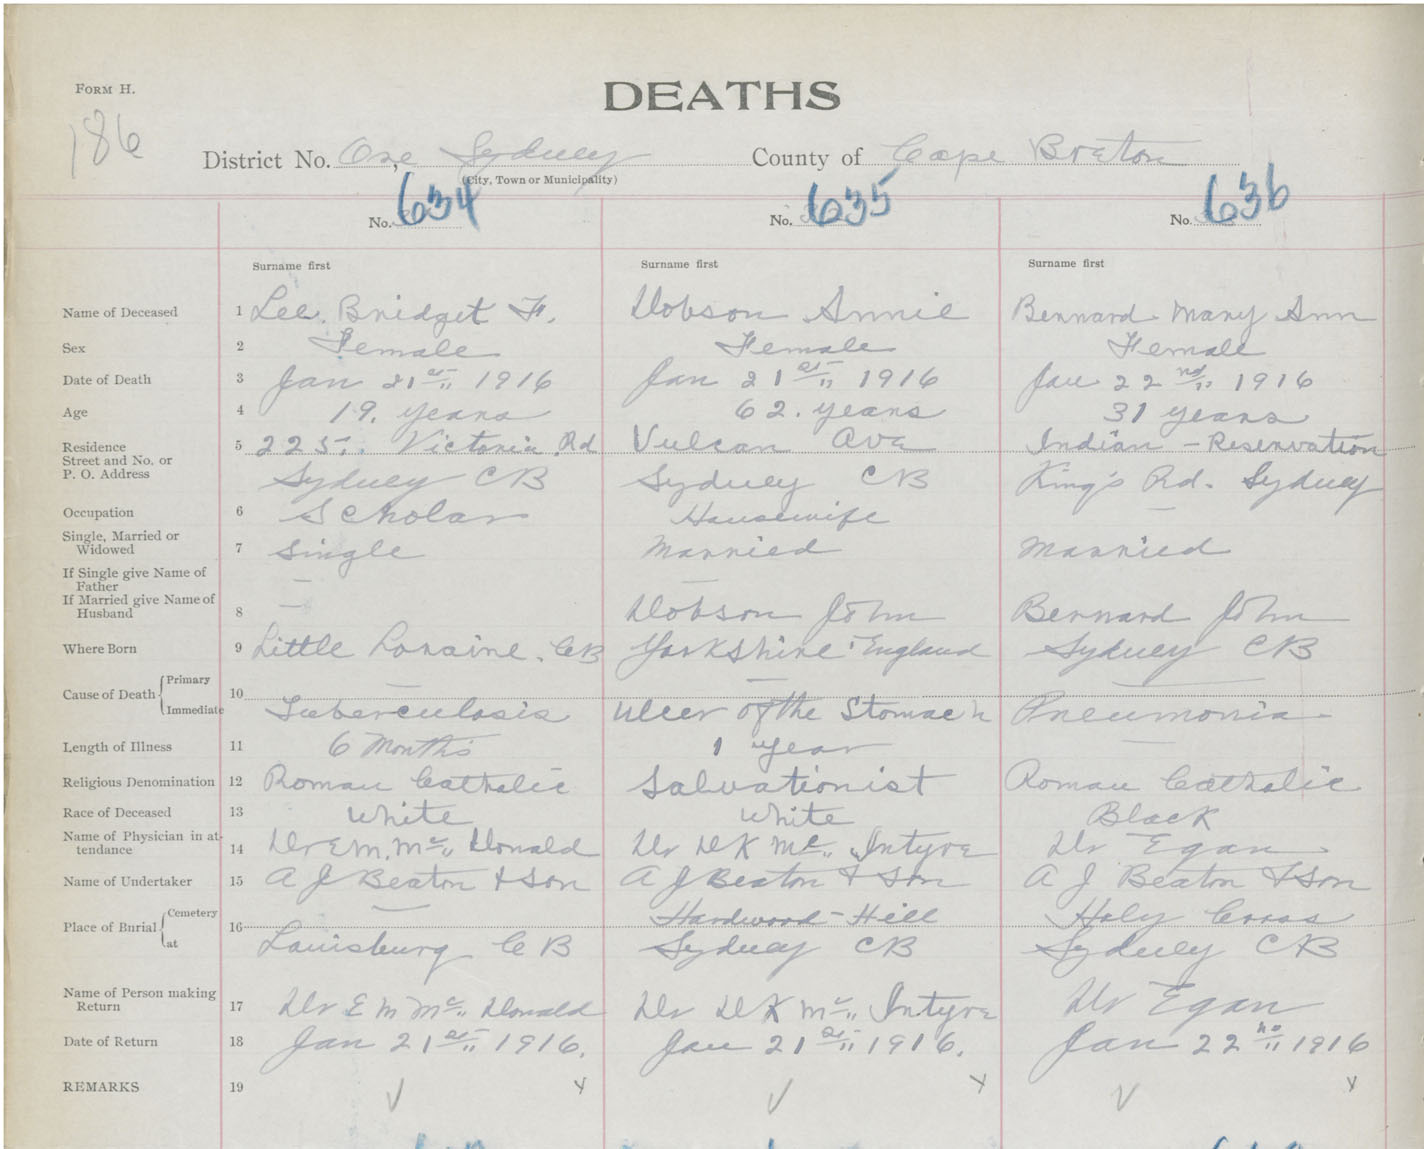 FORM H.
DEATHS
186
District No. One, Sydney County of Cape Breton
(City, Town or Municipality)
No. 634 No. 635 No. 636
Surname first Surname first Surname first
Name of Deceased 1 Lee. Bridget F. Dobson Annie Bernard Mary Ann
Sex 2 Female Female Female
Date of Death 3 Jan 21st 1916 Jan 21st 1916 Jan 22nd 1916
Age 4 19. years 62. years 31 years
Residence 5 225. Victoria Rd Vulcan Ave Indian - Reservation
Street and No. or
P. O. Address Sydney CB Sydney CB King's Rd. Sydney
Occupation 6 Scholar Housewife —
Single, Married or
Widowed 7 Single Married Married
If Single give Name of
Father — —
If Married give Name of
Husband 8 — Dobson John Bernard John
Where Born 9 Little Loraine. CB Yorkshire England Sydney CB
Cause of Death Primary 10 — — —
Immediate Tuberculosis Ulcer of the Stomach Pneumonia
Length of Illness 11 6 Months 1 year —
Religious Denomination 12 Roman Catholic Salvationist Roman Catholic
Race of Deceased 13 White White Black
Name of Physician in at-
tendance 14 Dr E M. Mc Donald Dr D K Mc Intyre Dr Egan
Name of Undertaker 15 A J Beaton & Son A J Beaton & Son A J Beaton & Son
Place of Burial Cemetery 16 — Hardwood - Hill Holy Cross
at Louisburg C B Sydney CB Sydney CB
Name of Person making
Return 17 Dr E M Mc Donald Dr D K Mc Intyre Dr Egan
Date of Return 18 Jan 21st 1916. Jan 21st 1916. Jan 22nd 1916
REMARKS 19